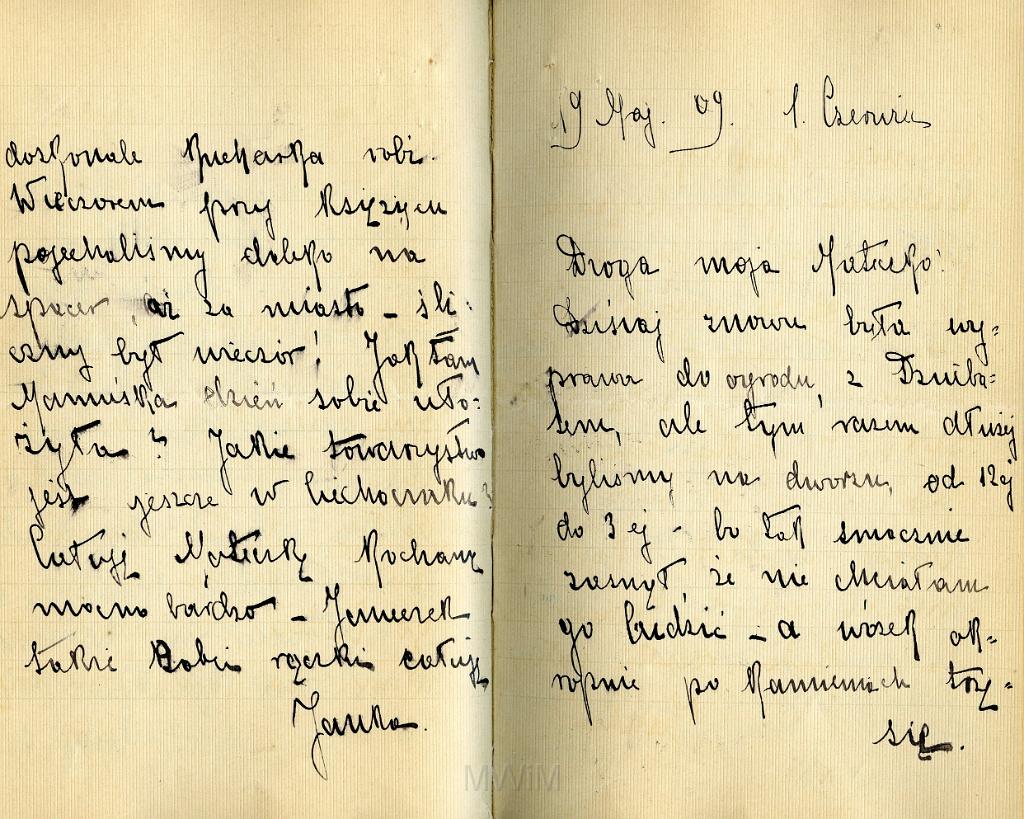 doskonale kucharka robi.
Wieczorem przy księżycu
pojechaliśmy daleko na
spacer, aż za miasto – śli-
czny był wieczór! Jak tam
Mamuśka dzień sobie uło-
żyła? Jakie towarzystwo
jest jeszcze w Ciechocinku?
Całuję Matuchkę kochaną
mocno bardzo – Janeczek
także Babci rączki całuje
Janka.
19 Maj. 09. 1. Czerwiec
Droga moja Matuchko!
Dzisiaj znowu była wy-
prawa do ogrodu z Dzniba-
sem, ale tym razem dłużej
byliśmy na dworzu, od 12ej
do 3ej – bo tak smacznie
zasnął, że nie chciałam
go budzić – a wózek ok-
ropnie po kamieniach trzę-
się.
MWiM